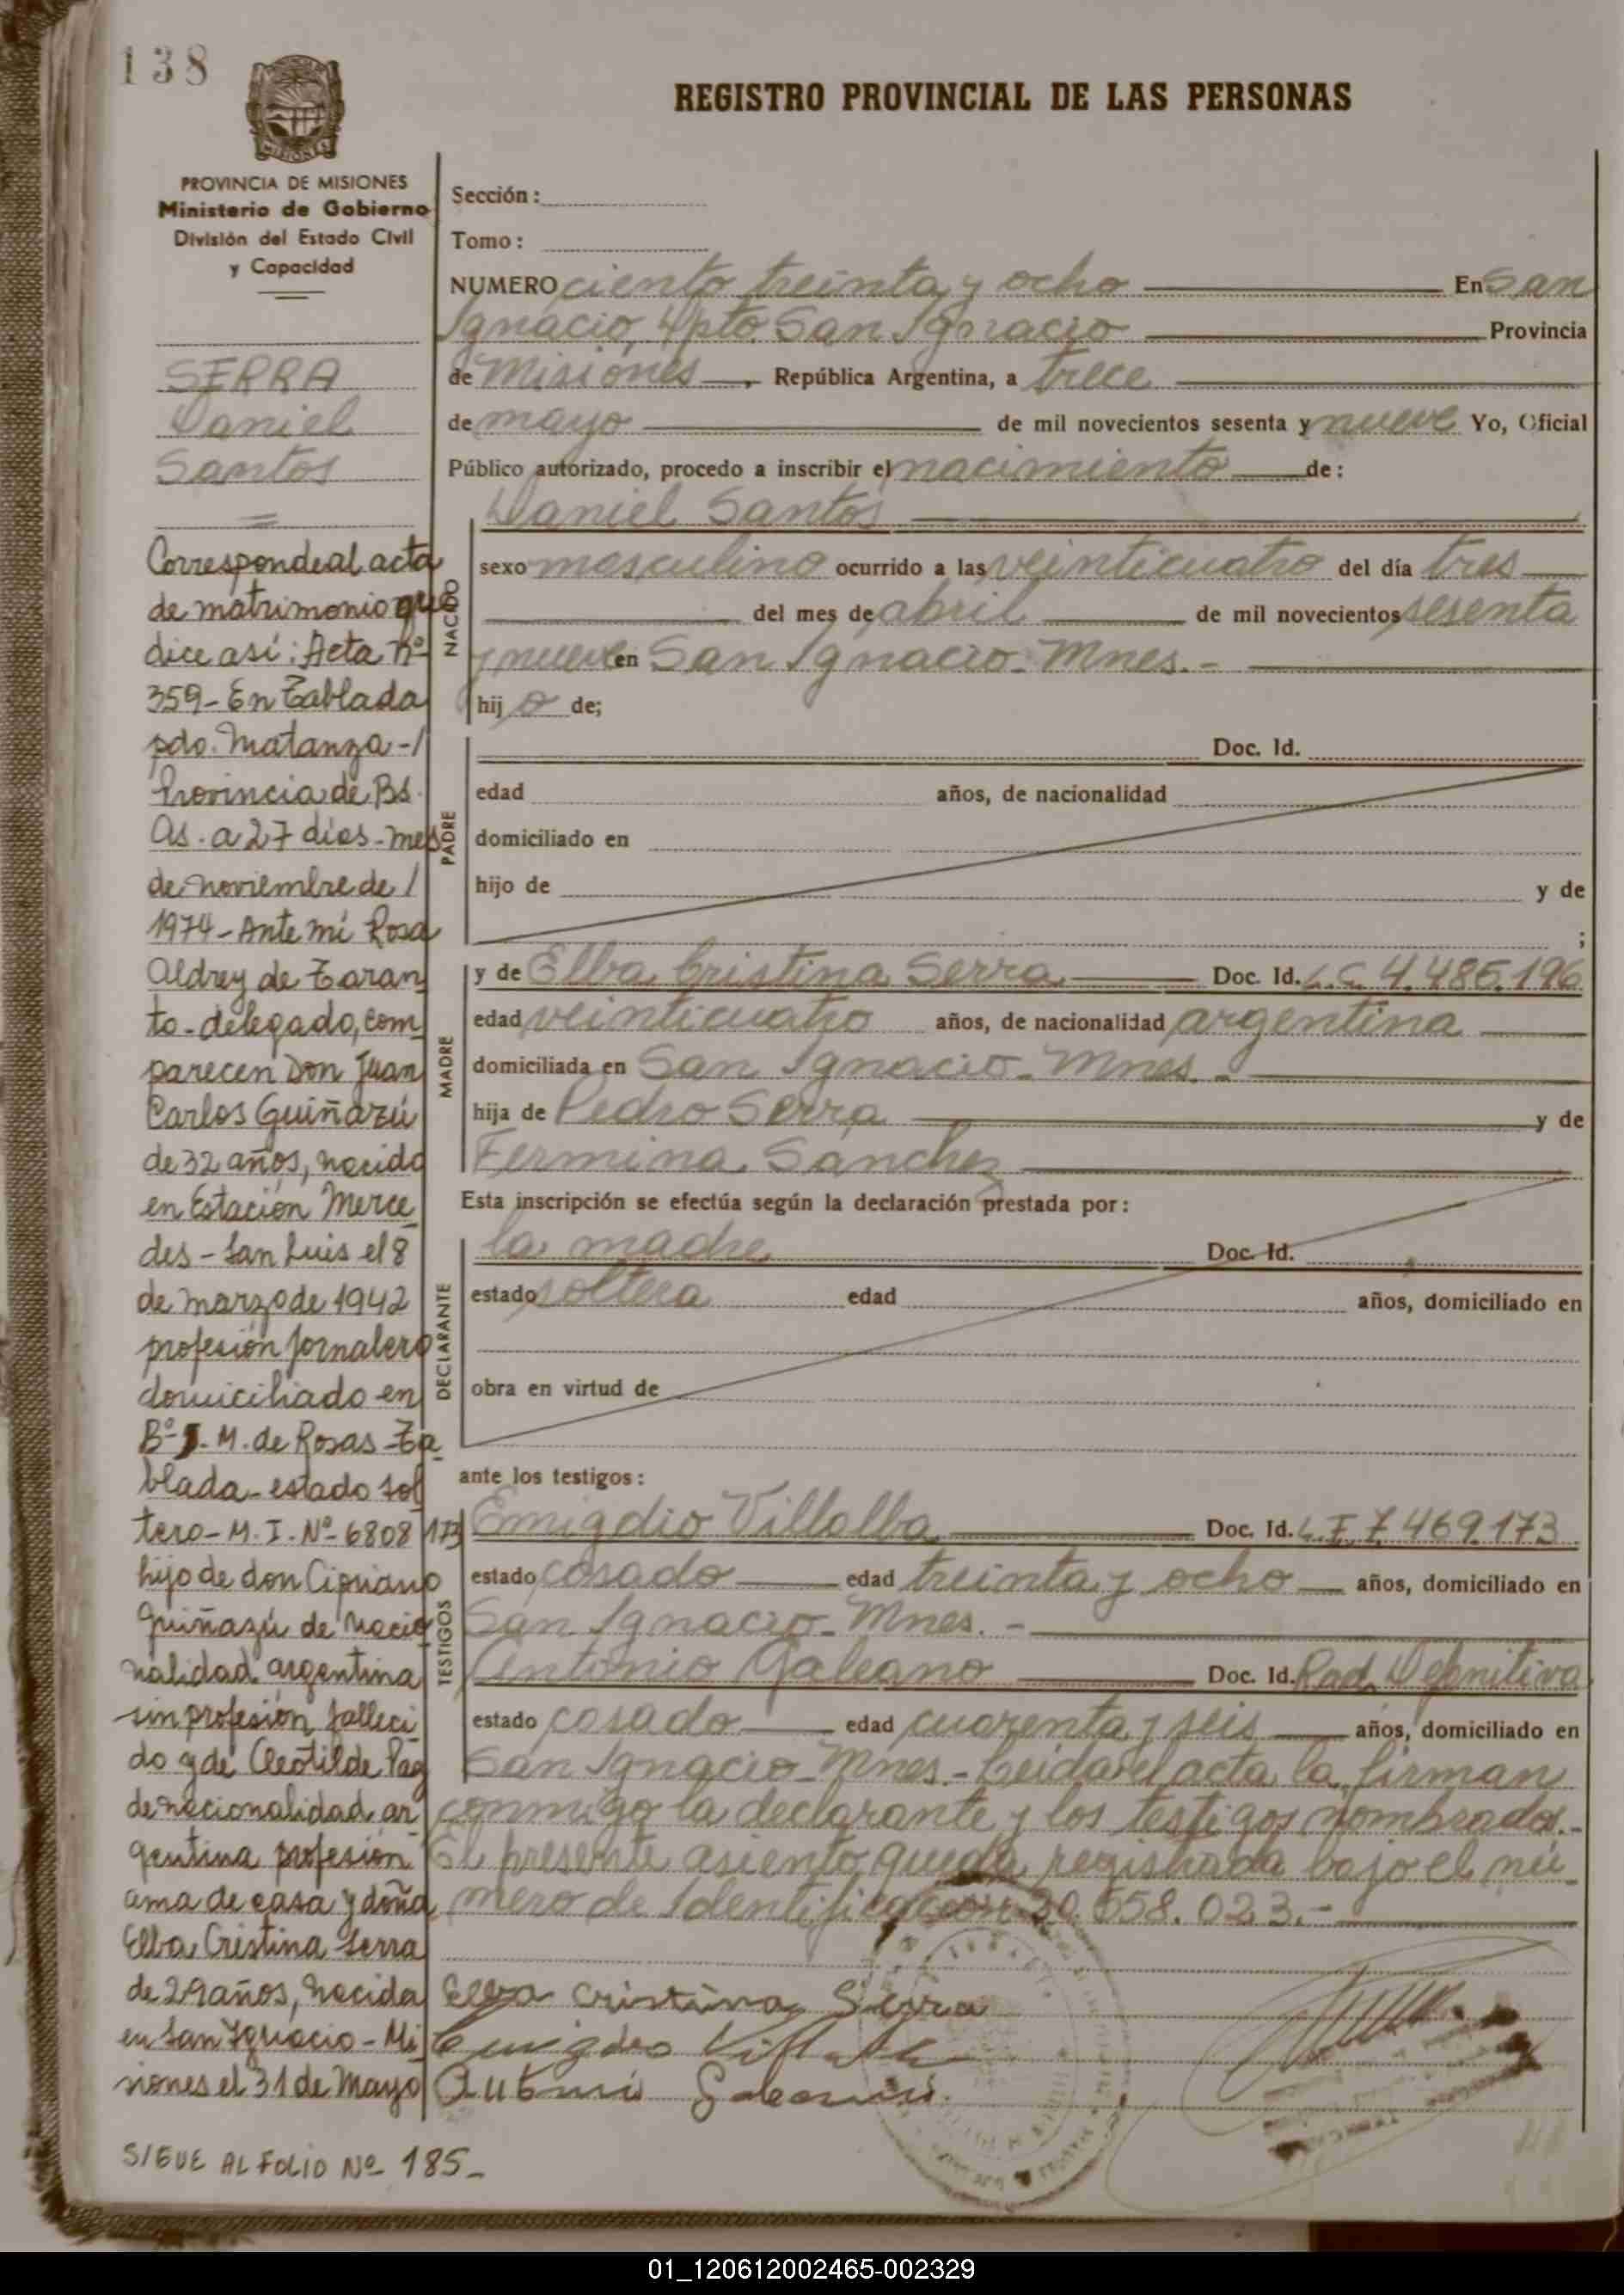 138
MISIONES
PROVINCIA DE MISIONES
Ministerio de Gobierno
División del Estado Civil
y Capacidad
SERRA
Daniel
Santos
=
Corresponde al acta
de matrimonio que
dice así: Acta nº
359 - En Tablada
pdo. Matanza - /
Provincia de Bs.
As. a 27 días - mes
de noviembre de /
1974 - Ante mí Rosa
Aldrey de Taran
to - delegado, com
parecen Don Juan
Carlos Guiñazú
de 32 años, nacido
en Estación Merce
des - San Luis el 8
de marzo de 1942
profesión jornalero
domiciliado en
Bº J. M. de Rosas - Ta
blada - estado sol
tero - M. I. Nº 6808173
hijo de don Cipriano
Guiñazú de nacio
nalidad argentina
sin profesión falleci
do y de Cleotilde Paz
de nacionalidad ar
gentina profesión
ama de casa y doña
Elba Cristina Serra
de 29 años, nacida
en San Ignacio - Mi
siones el 31 de Mayo
SIGUE AL FOLIO Nº 185-
REGISTRO PROVINCIAL DE LAS PERSONAS
Sección:
Tomo:
NUMERO ciento treinta y ocho En San
Ignacio, Dpto. San Ignacio Provincia
de Misiones, República Argentina, a trece
de mayo de mil novecientos sesenta y nueve Yo, Oficial
Público autorizado, procedo a inscribir el nacimiento de:
Daniel Santos
NACIDO
sexo masculino ocurrido a las veinticuatro del día tres
del mes de abril de mil novecientos sesenta
y nueve en San Ignacio - Mnes. -
hijo de;
PADRE
Doc. Id.
edad años, de nacionalidad
domiciliado en
hijo de y de
;
MADRE
y de Elba Cristina Serra Doc. Id. L.C. 4.485.196
edad veinticuatro años, de nacionalidad argentina
domiciliada en San Ignacio - Mnes. -
hija de Pedro Serra y de
Fermina Sánchez
Esta inscripción se efectúa según la declaración prestada por:
DECLARANTE
la madre Doc. Id.
estado soltera edad años, domiciliado en
obra en virtud de
ante los testigos:
TESTIGOS
Emigdio Villalba Doc. Id. L.E. 7.469.173
estado casado edad treinta y ocho años, domiciliado en
San Ignacio - Mnes. -
Antonio Galeano Doc. Id. Rad. Definitiva
estado casado edad cuarenta y seis años, domiciliado en
San Ignacio - Mnes. - Leida el acta la firman
conmigo la declarante y los testigos nombrados. -
El presente asiento queda registrada bajo el nú-
mero de Identificación 20.658.023. -
Elba Cristina Serra
Emigdio Villalba
Antonio Galeano
01_120612002465-002329